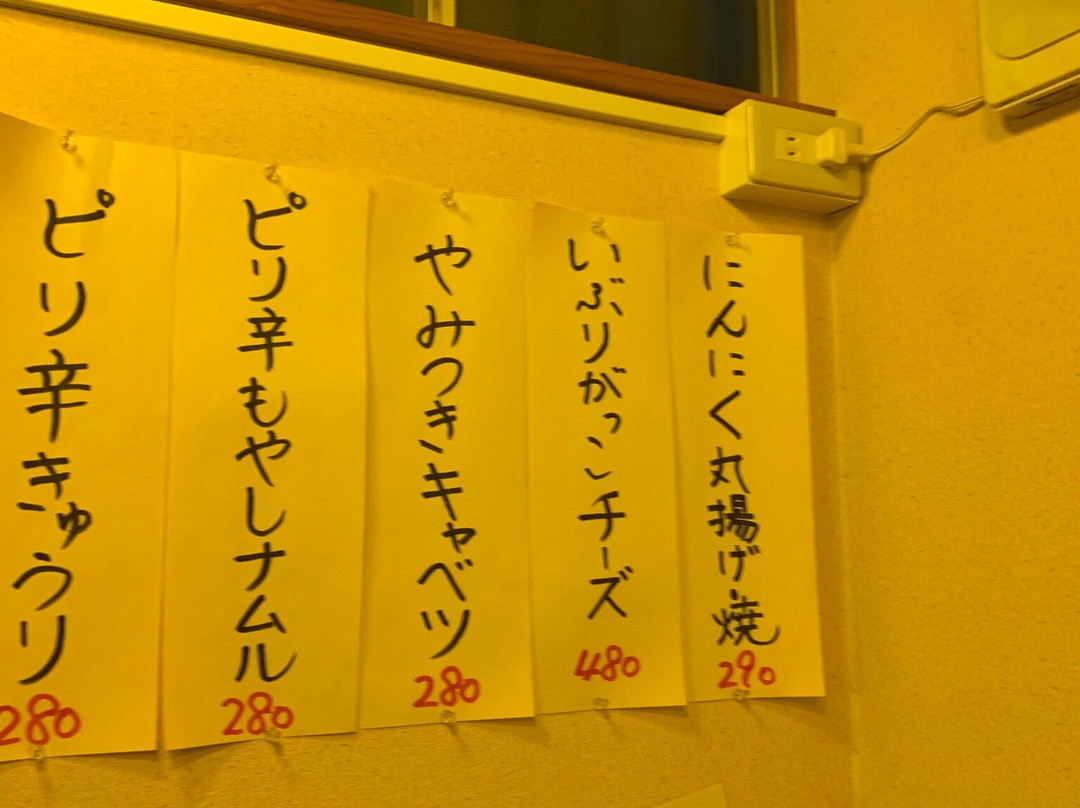 にんにく丸揚げ・焼
290
いぶりがっこチーズ
480
やみつきキャベツ
280
ピリ辛もやしナムル
280
ピリ辛きゅうり
280